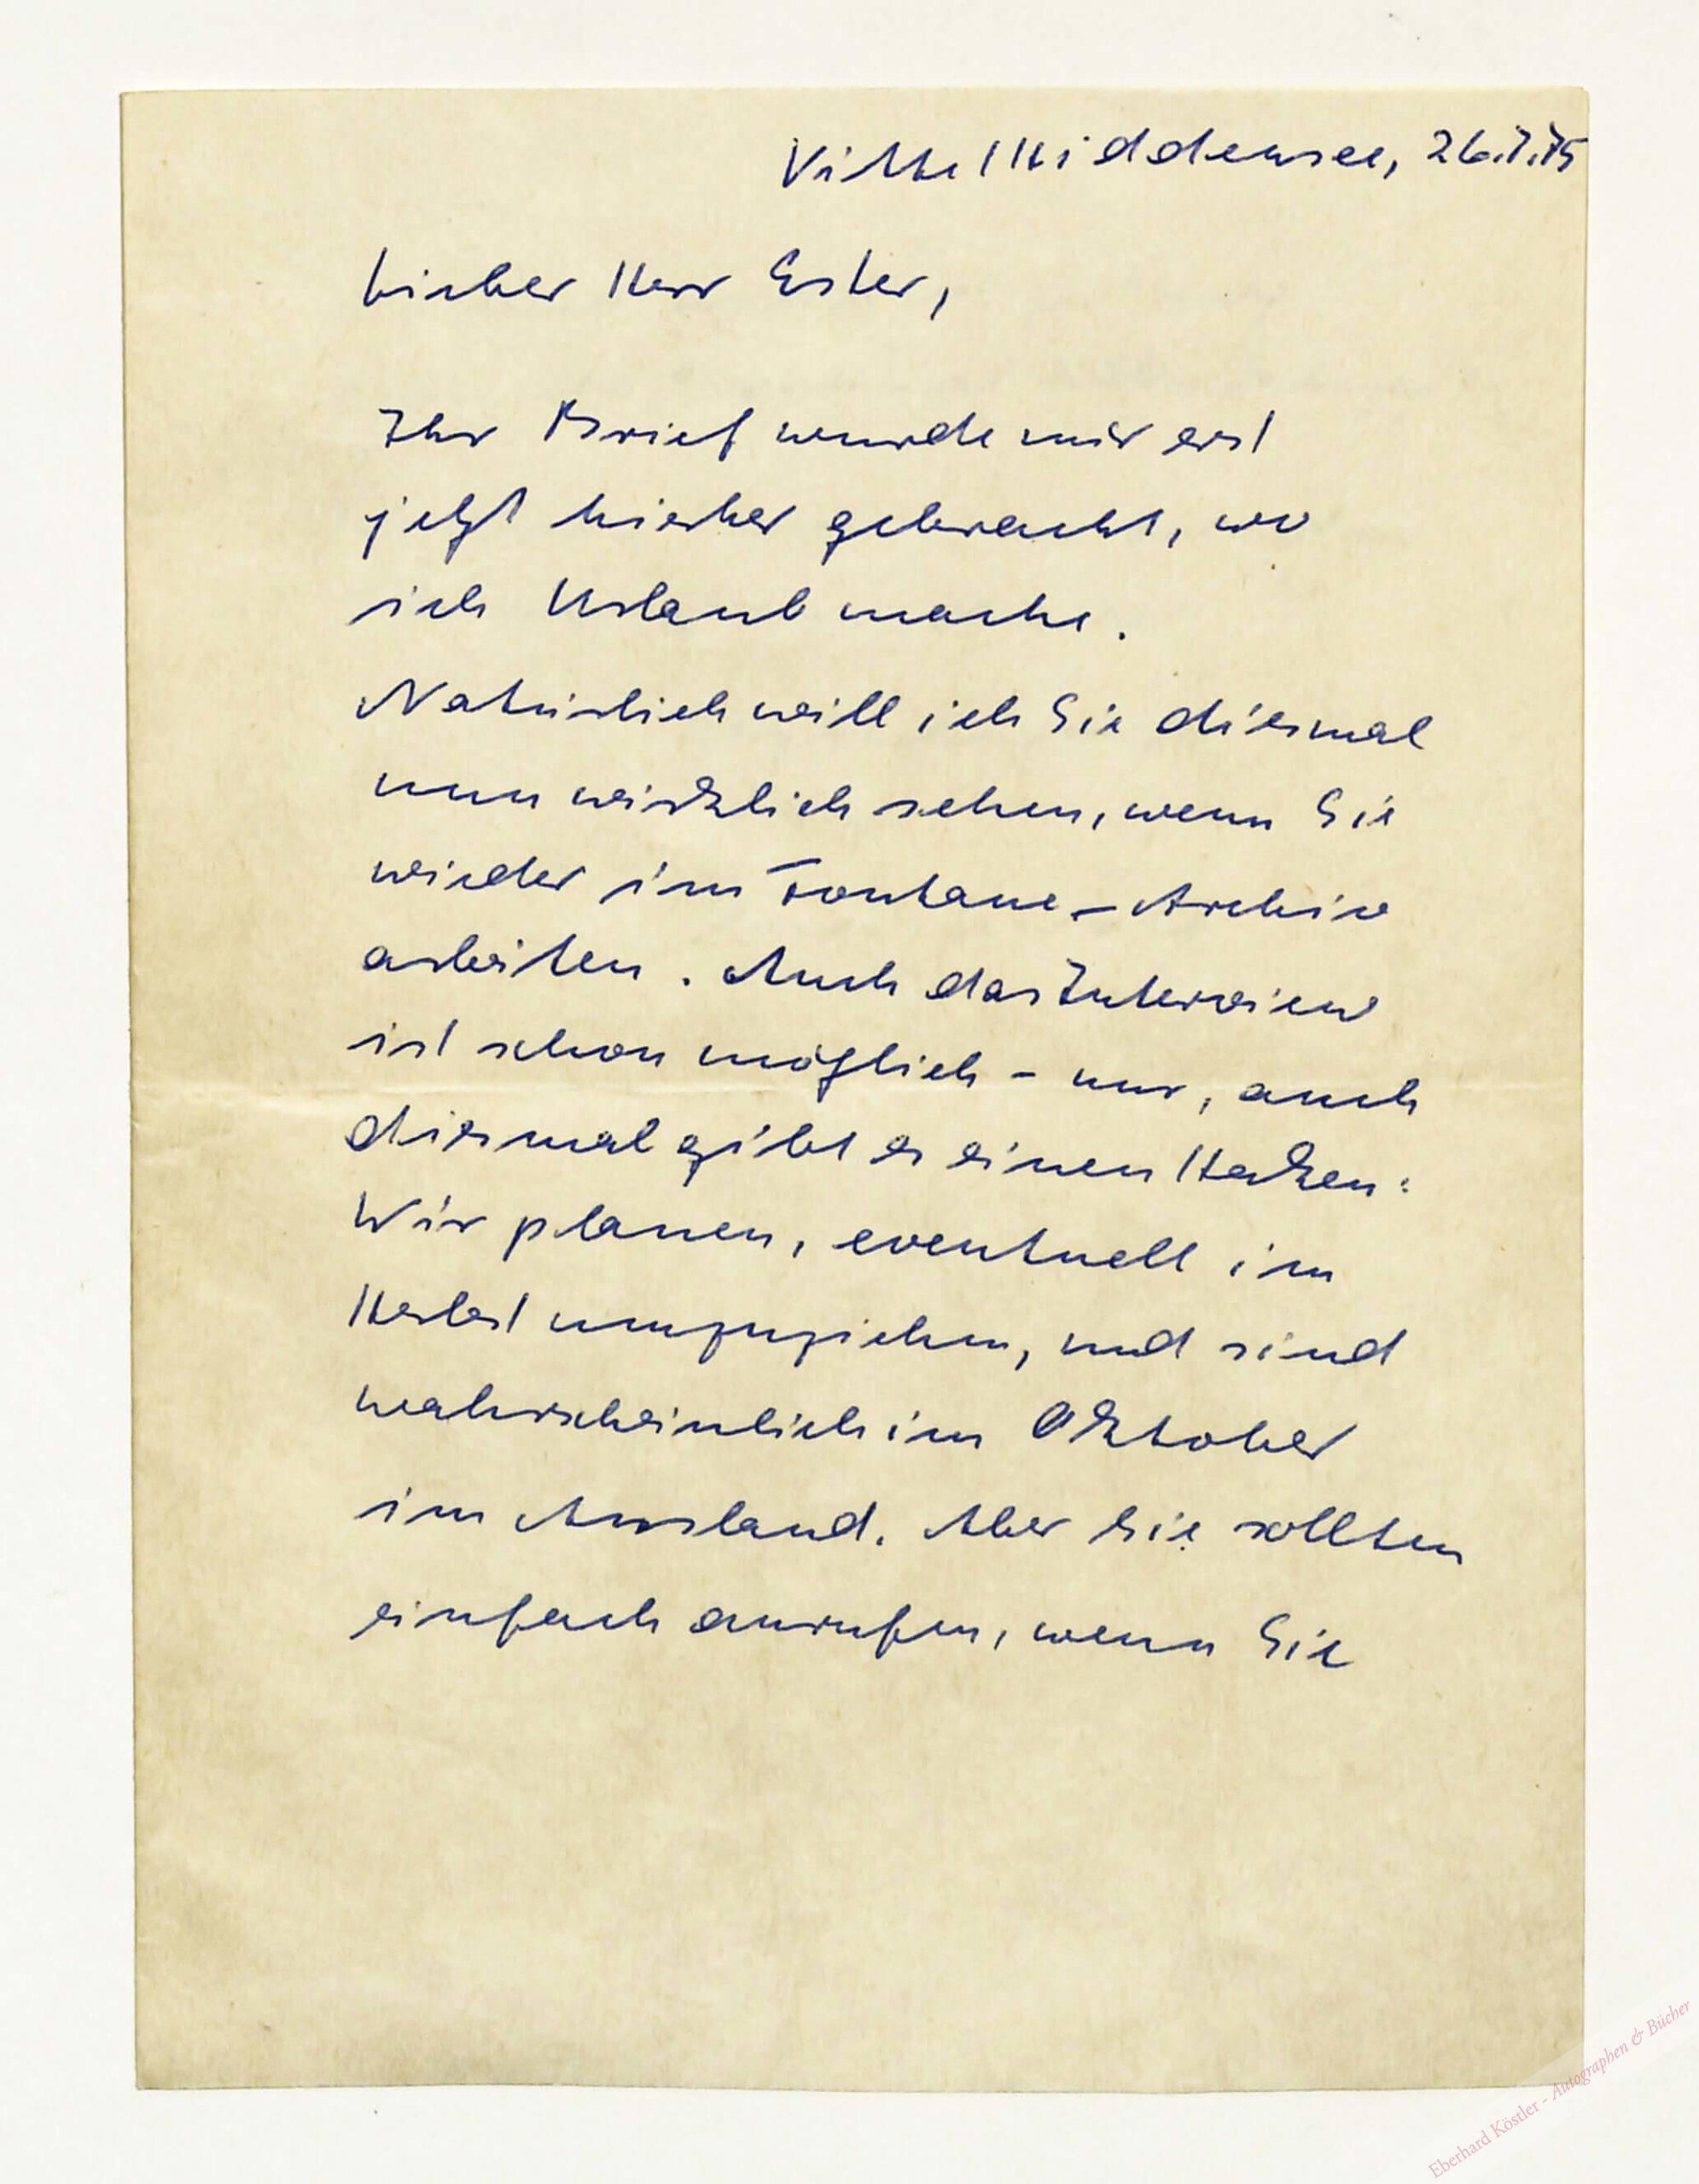 Vitte/Hiddensee, 26.7.75
Lieber Herr Ester,
Ihr Brief wurde mir erst
jetzt hierher gebracht, wo
ich Urlaub mache.
Natürlich will ich Sie diesmal
nun wirklich sehen, wenn Sie
wieder im Fontane-Archiv
arbeiten. Auch das Interview
ist schon möglich - nur, auch
diesmal gibt es einen Haken:
Wir planen, eventuell im
Herbst umzuziehen, und sind
wahrscheinlich im Oktober
im Ausland. Aber Sie sollten
einfach anrufen, wenn Sie
Eberhard Köstler - Autographen & Bücher